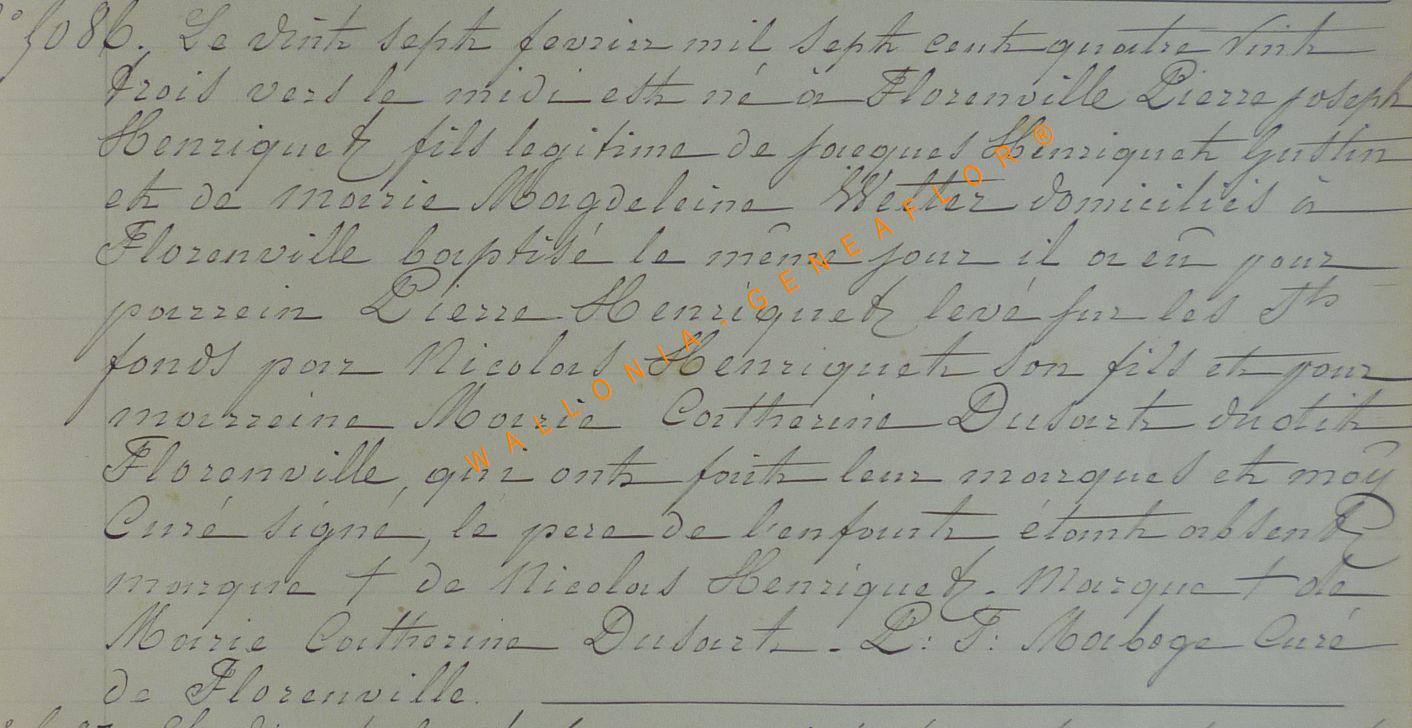 N° 5086. Le vint sept fevrier mil sept cent quatre vint
trois vers le midi est né à Florenville Pierre joseph
Henriquet fils legitime de jacques Henriquet Gustin
et de marie Magdeleine Welter domiciliés à
Florenville baptisé le même jour il a eû pour
parrein Pierre Henriquet levé sur les Sts
fonds par Nicolas Henriquet son fils et pour
marreine Marie Catherine Dusart dudit
Florenville, qui ont fait leur marques et moÿ
Curé signé, le pere de l'enfant étant absent
marque † de Nicolas Henriquet. Marque † de
Marie Catherine Dusart. P: F: Maboge Curé
de Florenville.
WALLONIA-GENEAFLOR®